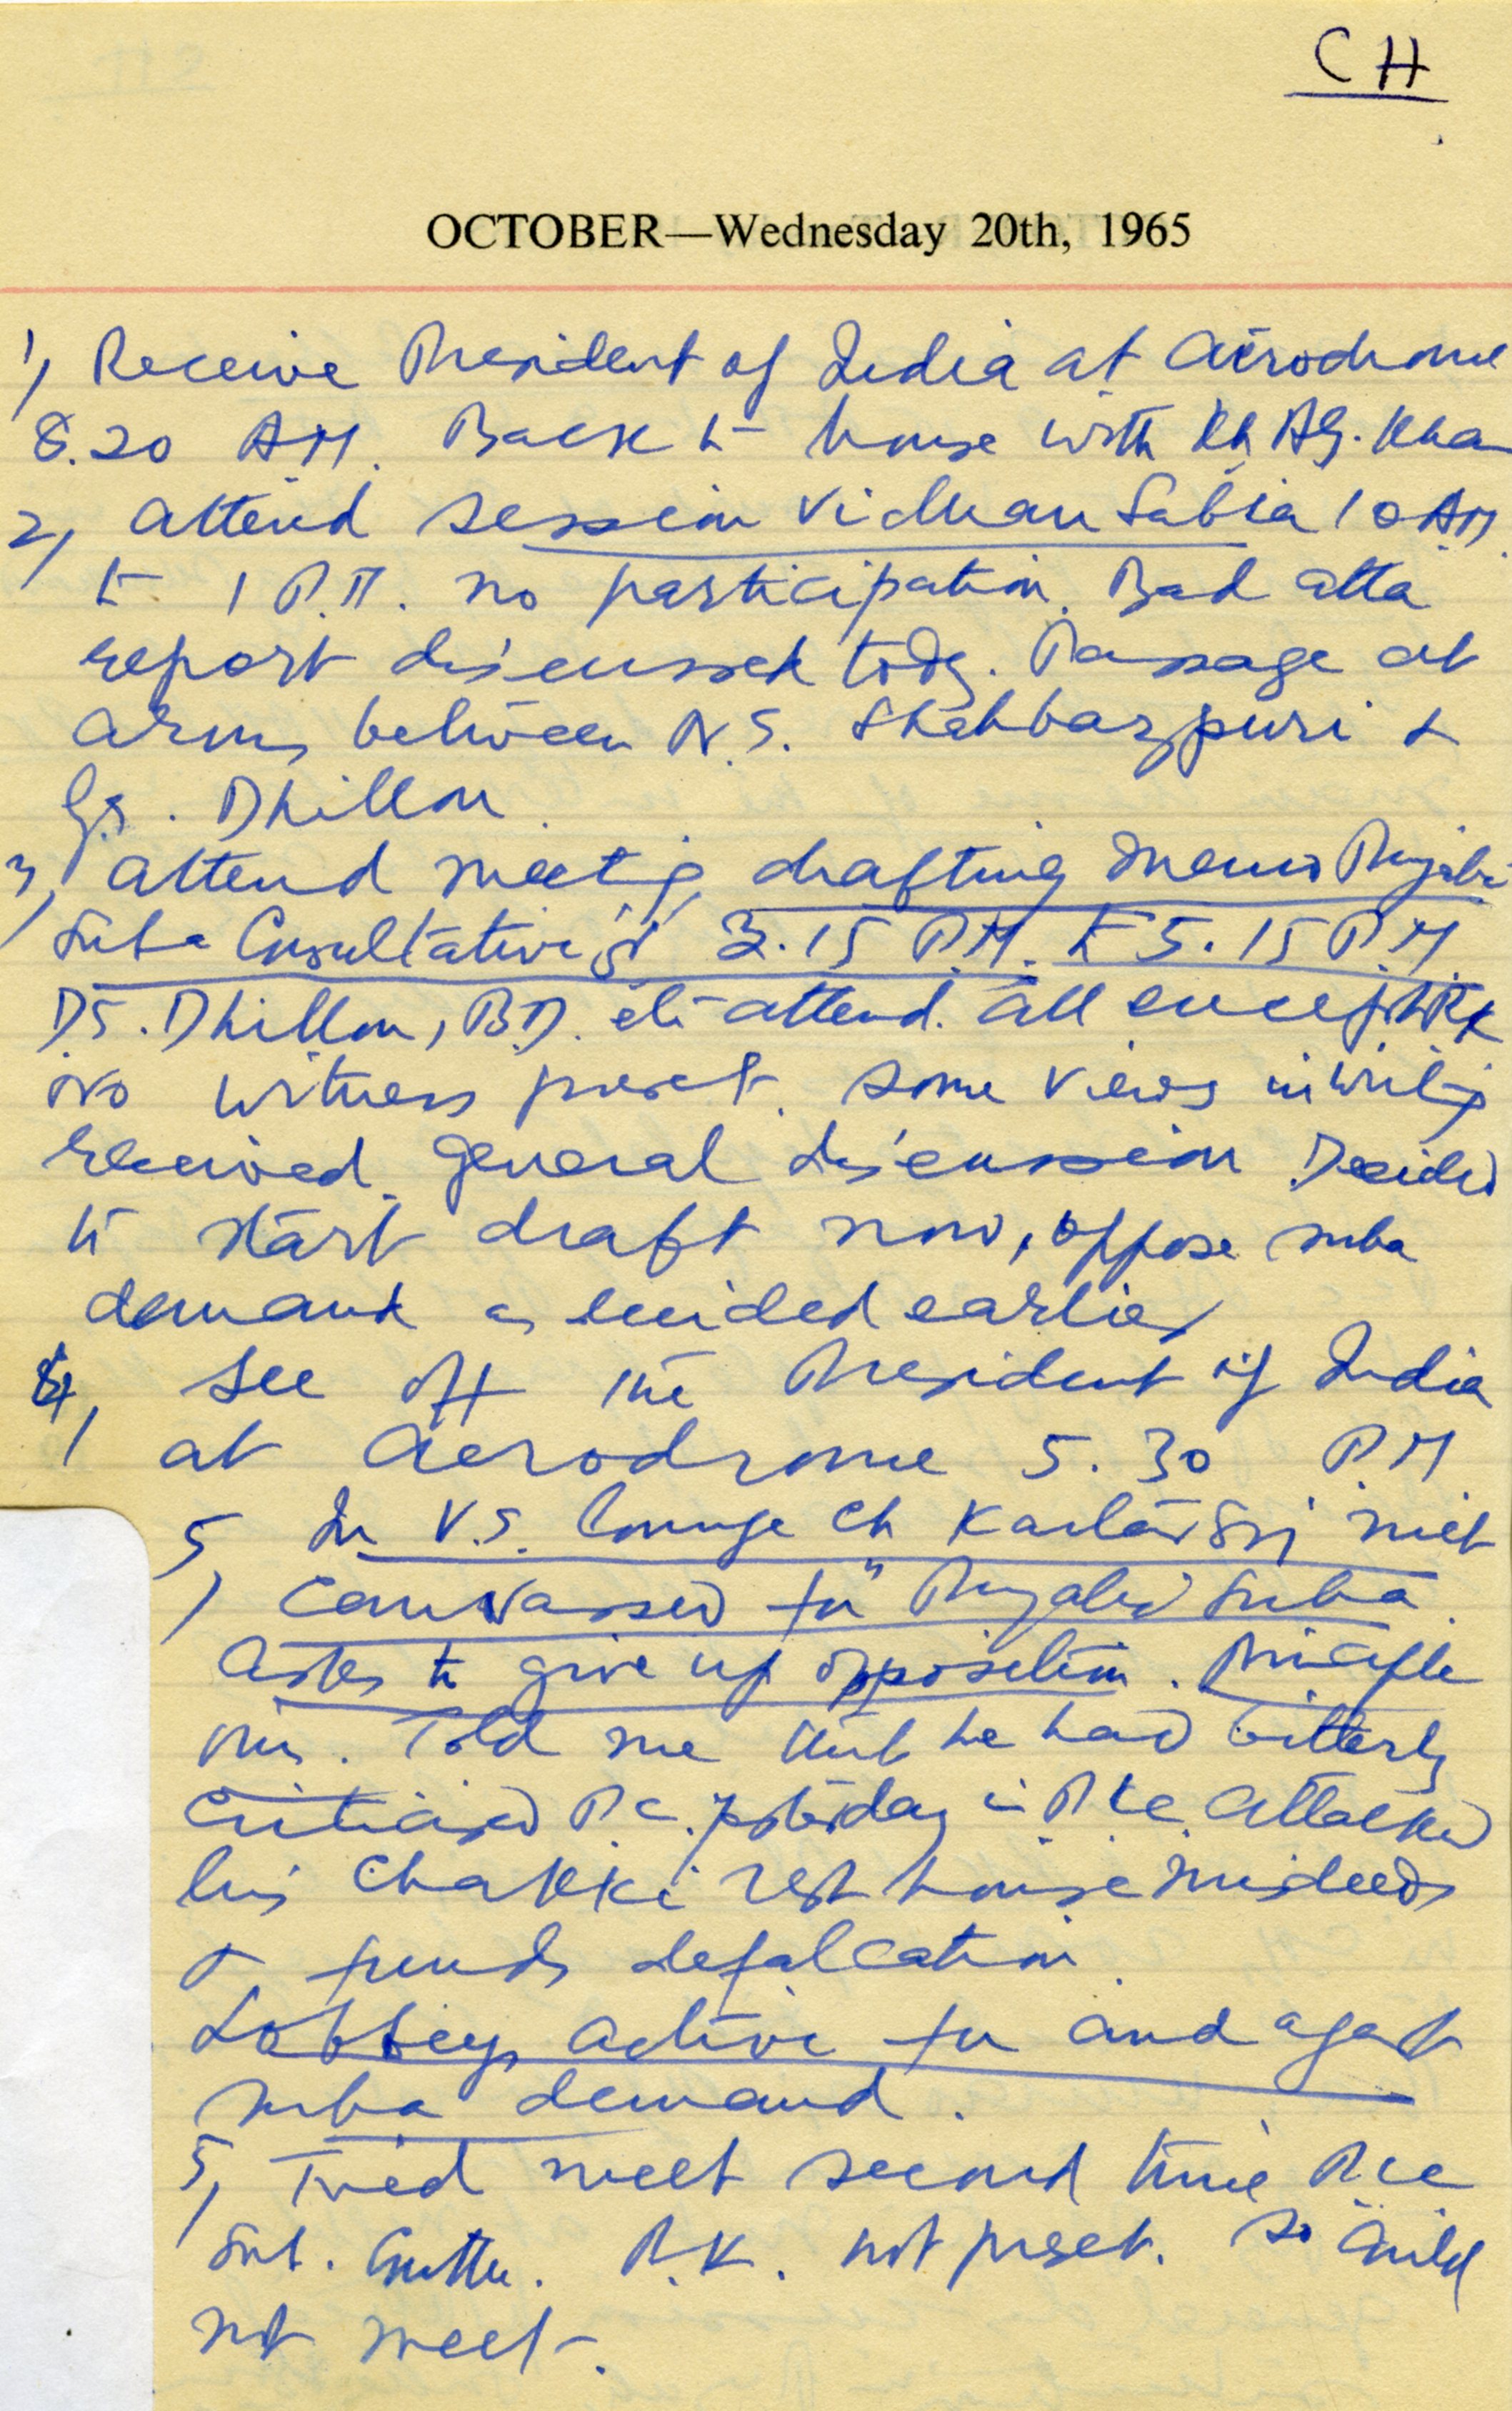 CH
OCTOBER—Wednesday 20th, 1965
1, Receive President of India at Aerodrome
8.20 AM. Back to house with Kh AG. Khan
2, Attend session Vidhan Sabha 10 AM
to 1 P.M. no participation. Bad atta
report discussed today. Passage at
arms between N.S. Shahbazpuri &
GS. Dhillon
3, Attend meeting drafting memo Punjabi
Suba Consultative 3.15 P.M. to 5.15 P.M.
D.S. Dhillon, B.D. etc attend. All except RK
No witness present. Some views in writing
received. General discussion Decided
to start draft now, oppose suba
demand as decided earlier
4, See off the President of India
at Aerodrome 5.30 P.M
5, In V.S. lounge Ch Kartar Sij met
canvassed for "Punjabi Suba
Asks to give up opposition. Principle
mins. Told me that he had bitterly
criticised P.C. yesterday in P.C.C. Attacked
his Chakki rest house misdeeds
& funds defalcation.
Lobbeys active for and agast
suba demand.
5, Tried meet second time P.C.C
Sub. Cmttee. R.K. not preset. So could
not meet.